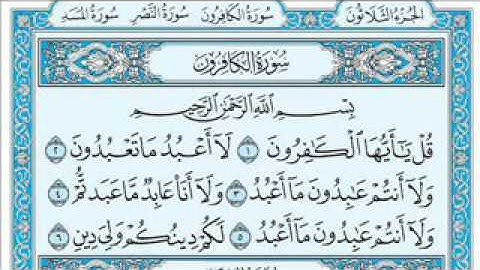 الجزء الثلاثون سورة الكافرون سورة النصر سورة المسد
سورة الكافرون
بِسْمِ اللَّهِ الرَّحْمَٰنِ الرَّحِيمِ
قُلْ يَٰٓأَيُّهَا الْكَٰفِرُونَ ١ لَآ أَعْبُدُ مَا تَعْبُدُونَ ٢
وَلَآ أَنتُمْ عَٰبِدُونَ مَآ أَعْبُدُ ٣ وَلَآ أَنَا۠ عَابِدٌ مَّا عَبَدتُّمْ ٤
وَلَآ أَنتُمْ عَٰبِدُونَ مَآ أَعْبُدُ ٥ لَكُمْ دِينُكُمْ وَلِيَ دِينِ ٦